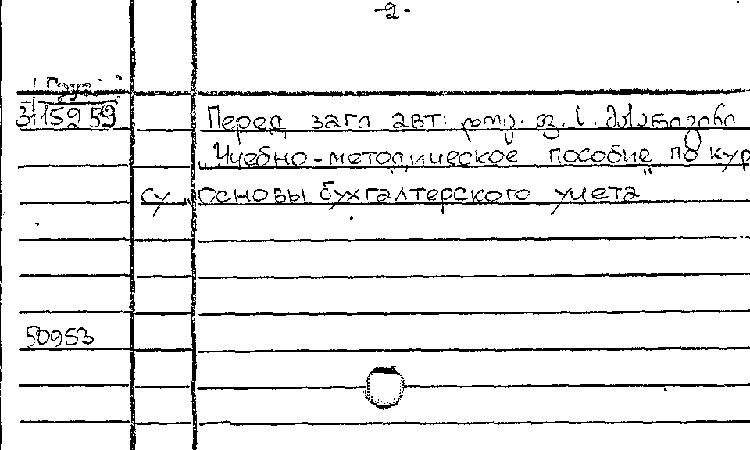 -2-
3115959
Перед загл авт: დოც. ფ. ს. მასარიკინი
„Учебно-методическое пособие по кур
су „Основы бухгалтерского учета"
50953